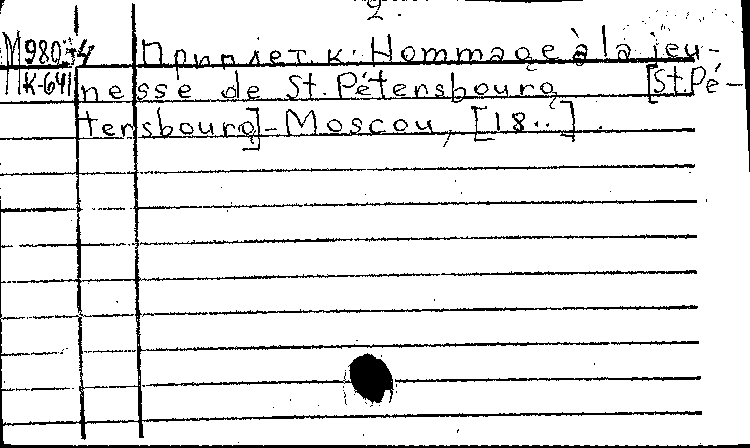 2.
М980-4 Приплет. к: Hommage à la jeu-
К-641 nesse de St. Pétersbourg [St. Pé-
tersbourg]-Moscou, [18..].